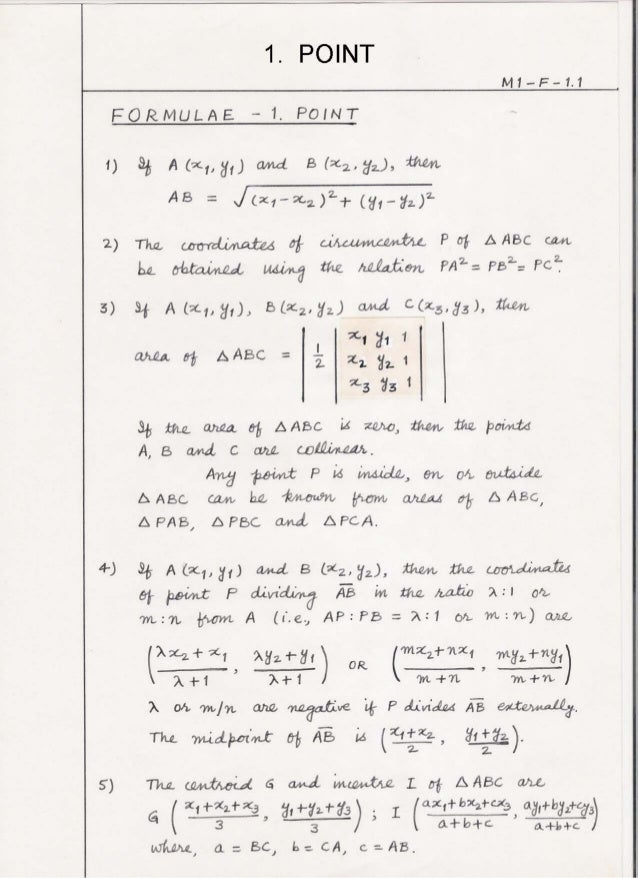 1. POINT
M1-F-1.1
FORMULAE - 1. POINT
1) If A (x₁, y₁) and B (x₂, y₂), then
AB = √(x₁-x₂)² + (y₁-y₂)²
2) The coordinates of circumcentre P of △ ABC can
be obtained using the relation PA² = PB² = PC².
3) If A (x₁, y₁), B (x₂, y₂) and C (x₃, y₃), then
x₁ y₁ 1
area of △ ABC = | 1/2 | x₂ y₂ 1 | |
x₃ y₃ 1
If the area of △ ABC is zero, then the points
A, B and C are collinear.
Any point P is inside, on or outside
△ ABC can be known from areas of △ ABC,
△ PAB, △ PBC and △ PCA.
4) If A (x₁, y₁) and B (x₂, y₂), then the coordinates
of point P dividing A̅B̅ in the ratio λ:1 or
m:n from A (i.e., AP:PB = λ:1 or m:n) are
(λx₂+x₁/λ+1, λy₂+y₁/λ+1) OR (mx₂+nx₁/m+n, my₂+ny₁/m+n)
λ or m/n are negative if P divides A̅B̅ externally.
The midpoint of A̅B̅ is (x₁+x₂/2, y₁+y₂/2).
5) The centroid G and incentre I of △ ABC are
G (x₁+x₂+x₃/3, y₁+y₂+y₃/3) ; I (ax₁+bx₂+cx₃/a+b+c, ay₁+by₂+cy₃/a+b+c)
where, a = BC, b = CA, c = AB.